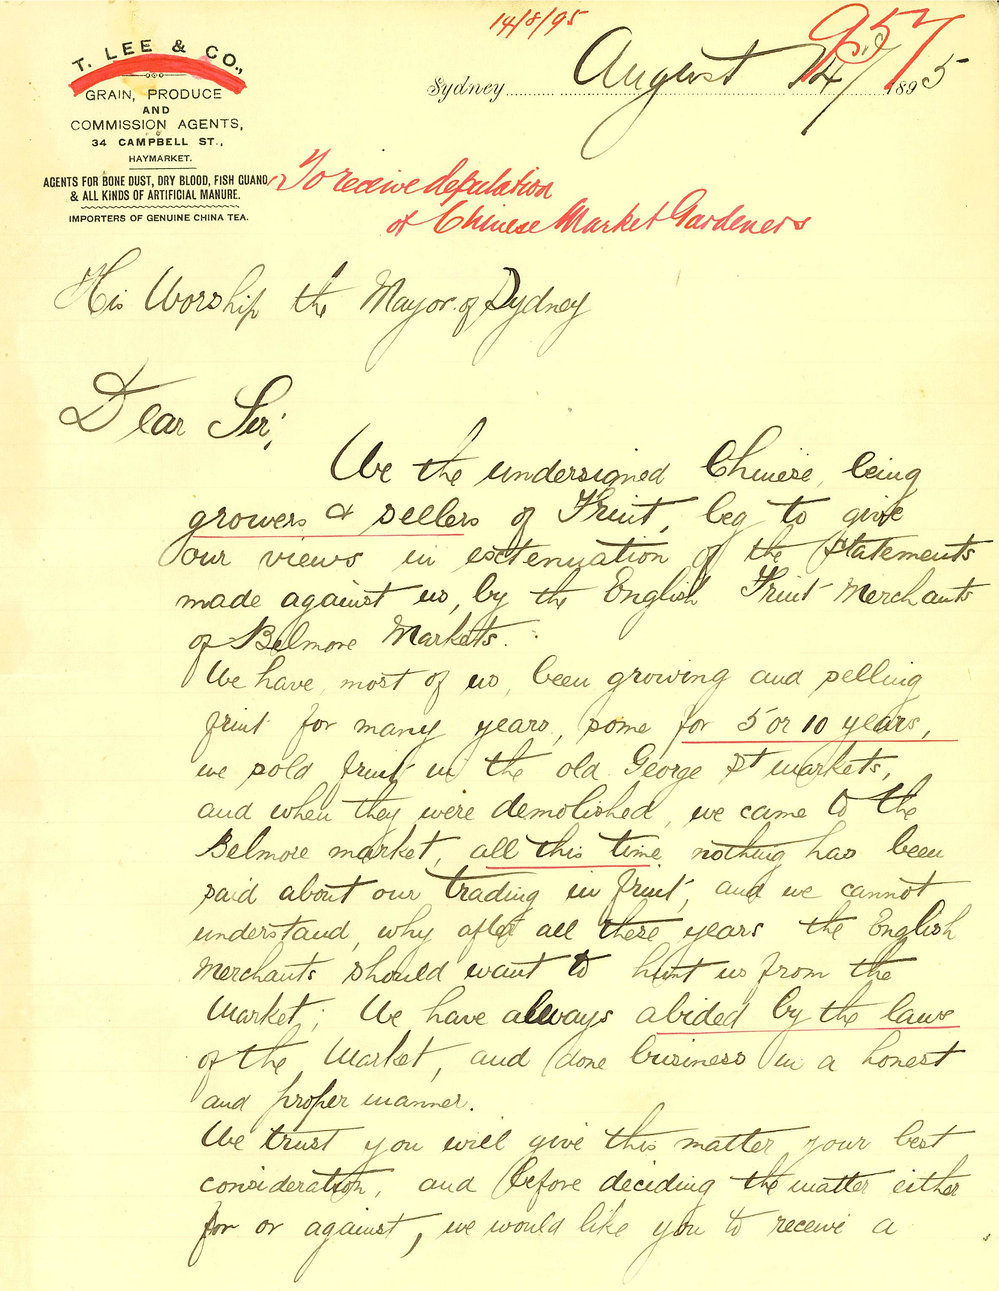 14/8/95
957
T. LEE & CO.,
GRAIN, PRODUCE
AND
COMMISSION AGENTS,
34 CAMPBELL ST.,
HAYMARKET.
AGENTS FOR BONE DUST, DRY BLOOD, FISH GUANO,
& ALL KINDS OF ARTIFICIAL MANURE.
IMPORTERS OF GENUINE CHINA TEA.
Sydney August 14 1895
To receive deputation
of Chinese Market Gardeners
His Worship the Mayor of Sydney
Dear Sir,
We the undersigned Chinese, being
growers & sellers of Fruit, beg to give
our views in extenuation of the statements
made against us, by the English Fruit Merchants
of Belmore Markets.
We have, most of us, been growing and selling
fruit for many years, some for 5 or 10 years,
we sold fruit in the old George St markets,
and when they were demolished, we came to the
Belmore market, all this time nothing has been
said about our trading in fruit, and we cannot
understand, why after all these years the English
Merchants should want to hunt us from the
Market; We have always abided by the laws
of the Market, and done business in a honest
and proper manner.
We trust you will give this matter your best
consideration, and before deciding the matter either
for or against, we would like you to receive a